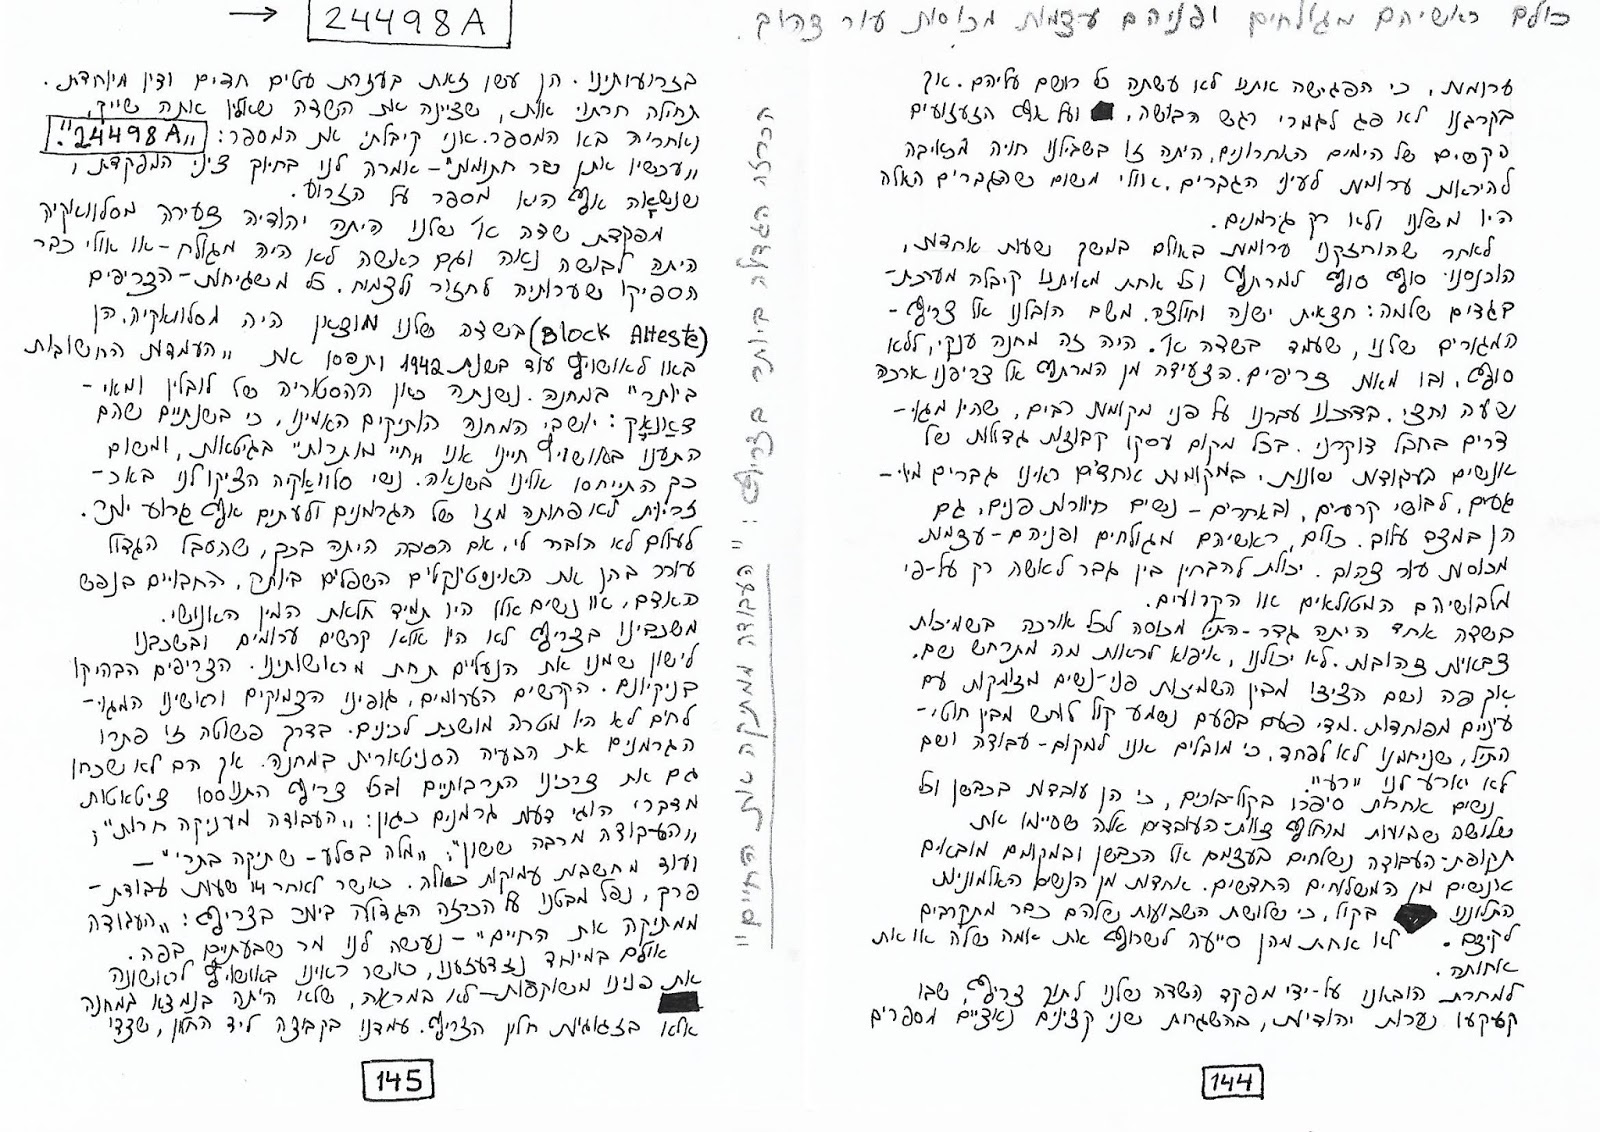 כולם ראשיהם מגולחים ופניהם עצמות מכוסות עור צהוב.
ערומות, כי הפגישה אתנו לא עשתה כל רושם עליהם. אך
בקרבנו לא פג לגמרי רגש הבושה, ועל אף הזעזועים
פקסים של הימים האחרונים, היתה זו בשבילנו חויה מכאיבה
להיראות ערומות לעיני הגברים. אולי משום שהגברים האלה
היו משלנו ולא רק גרמנים.
לאחר שהוחזקנו ערומות באולם במשך שעות אחדות,
הוכנסנו סוף סוף למרתף וכל אחת מאיתנו קיבלה מערכת-
בגדים שלמה: חצאית ישנה וחולצה. משם הובלנו אל צריף-
המגורים שלנו, שעמד בשדה א'. היה זה מחנה ענקי, ללא
סוף, ובו מאות צריפים. הצעידה מן המרתף אל צריפנו ארכה
שעה וחצי. בדרכנו עברנו על פני מקומות רבים, שהיו מגו-
דרים בחבל דוקרני. בכל מקום עסקו קבוצות גדולות של
אנשים בעבודות שונות. במקומות אחדים ראינו גברים מיו-
געים, לבושי קרעים, ובאחרים - נשים חיוורות פנים, גם
הן במצב עלוב. כולם, ראשיהם מגולחים ופניהם - עצמות
מכוסות עור צהוב. יכולת להבחין בין גבר לאשה רק על-פי
מלבושיהם המטולאים או הקרועים.
בשדה אחד היתה גדר-התיל מכוסה לכל אורכה בשמיכות
צבאיות צהובות. לא יכולנו, איפוא לראות מה מתרחש שם.
אך פה ושם הציצו מבין השמיכות פני-נשים מצומקות עם
עיניים מפוחדות. מדי פעם בפעם נשמע קול לוחש מבין חוטי-
התיל, שניחמנו לא לפחד, כי מובלים אנו למקום-עבודה ושם
לא יארע לנו "רע".
נשים אחרות סיפרו בקול-בוכים, כי הן עובדות בכבשן וכל
שלושה שבועות מוחלף צוות-העובדים אלה שסיימו את
תקופת-העבודה נשלחים בעצמם אל הכבשן ובמקומם מובאים
אנשים מן המשלוחים החדשים. אחדות מן הנשים האלמוניות
התלוננו בקול, כי שלושת השבועות שלהם כבר מתקרבים
לקיצם. לא אחת מהן סייעה לשרוף את אמה שלה או את
אחותה.
למחרת הובאנו על-ידי מפקד השדה שלנו לתוך צריף, שבו
קעקעו נערות יהודיות, בהשגחת שני קצינים נאציים מספרים
144
הכרזה הגדולה ביותר בצריף: "העבודה ממתיקה את החיים"
→ 24498A
בזרועותינו. הן עשו זאת בעזרת עטים חדים ודיו מיוחדת.
תחילה חרתו אות, שציינה את השדה שאליו אתה שייך,
ואחריה בא המספר. אני קיבלתי את המספר: "24498A".
"עכשיו אתן כבר חתומות" - אומרה לנו בחיוך ציני המפקדת,
שנשאה אף היא מספר על הזרוע.
מפקדת שדה א' שלנו היתה יהודיה צעירה מסלוואקיה
היתה לבושה נאה וגם ראשה לא היה מגולח - או אולי כבר
הספיקו שערותיה לחזור ולצמוח. כל משגיחות-הצריפים
(Block Alteste) בשדה שלנו מוצאן היה מסלוואקיה. הן
באו לאושויץ עוד בשנת 1942 ותפסו את "העמדות החשובות
ביותר" במחנה. נשנתה כאן ההסטריה של לובלין ומאי-
דאנאק: יושבי המחנה הותיקים האמינו, כי בשנתיים שהם
התענו באושויץ חיינו אנו "חיי מותרות" בגיטאות, ומשום
כך התייחסו אלינו בשנאה. נשי סלוואקיה הציקו לנו באכ-
זריות לא פחותה מזו של הגרמנים ולעתים אף גרוע יותר.
לעולם לא הוברר לי, אם הסבה היתה בכך, שהסבל הגדול
עורר בהן את האינסטינקטים השפלים ביותר, החבויים בנפש
האדם, או נשים אלו היו תמיד חלאת המין האנושי.
משכבינו בצריף לא היו אלא קרשים ערומים ובשכבנו
לישון שמנו את הנעליים תחת מראשותינו. הצריפים הבהיקו
בניקיונם. הקרשים הערומים, גופינו הצמוקים וראשינו המגו-
לחים לא היו מטרה מושכת לכינים. בדרך פשוטה זו פתרו
הגרמנים את הבעיה הסניטארית במחנה. אך הם לא שכחו
גם את צרכינו התרבותיים ובכל צריף התנוססו ציטאטות
מדברי הוגי דעות גרמנים כגון: "העבודה מעניקה חרות";
"העבודה מרבה ששון"; "מלה בסלע - שתיקה בתרי" -
ועוד מחשבות עמוקות כאלה. כאשר לאחר 14 שעות עבודת-
פרך, נפל מבטנו על הכרזה הגדולה ביותר בצריף: "העבודה
ממתיקה את החיים" - נעשה לנו מר שבעתיים בפה.
אולם במיוחד נזדעזענו, כאשר ראינו באושויץ לראשונה
את פנינו משוקפות - לא במראה, שלא היתה בנמצא במחנה
אלא בזגוגיות חלון הצריף. עמדנו בקבוצה ליד החלון, שצדי
145